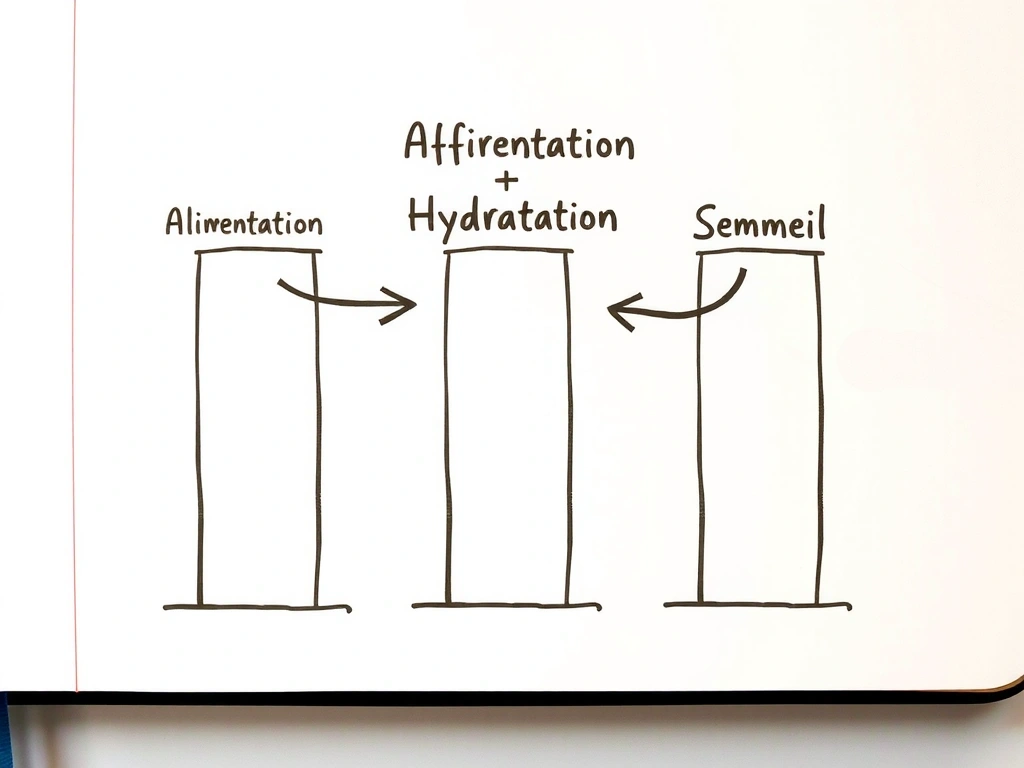 Affirentation
+
Hydratation
Alimentation
Semmeil